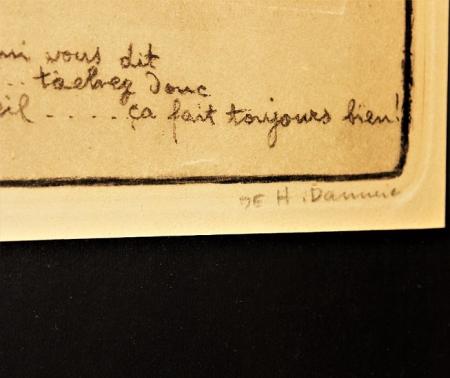 vous dit
... tâchez donc
eil ..... ça fait toujours bien!
DE H. Daumier